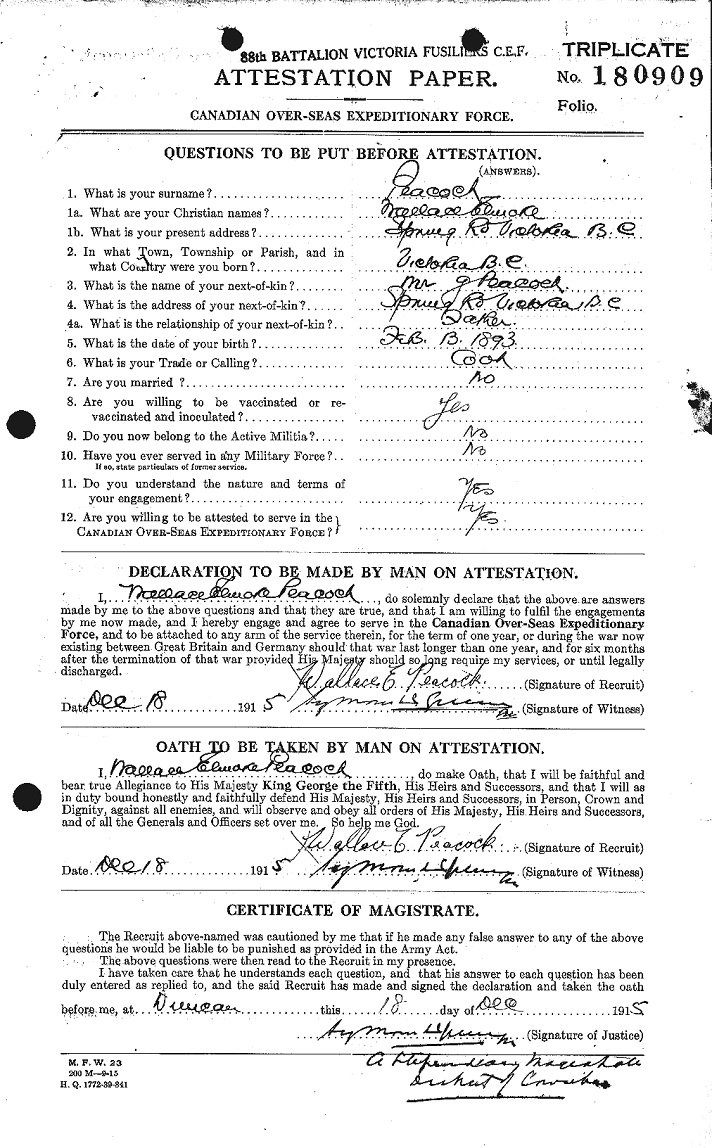 88th BATTALION VICTORIA FUSILIERS C.E.F.
TRIPLICATE
ATTESTATION PAPER.
No. 180909
Folio.
CANADIAN OVER-SEAS EXPEDITIONARY FORCE.
QUESTIONS TO BE PUT BEFORE ATTESTATION.
(ANSWERS).
1. What is your surname?........ Peacock
1a. What are your Christian names?........ Wallace Elmore
1b. What is your present address?........ Spring Rd Victoria B.C
2. In what Town, Township or Parish, and in
what Country were you born?........ Victoria B.C.
3. What is the name of your next-of-kin?........ Mr G Peacock
4. What is the address of your next-of-kin?........ Spring Rd Victoria, B C
4a. What is the relationship of your next-of-kin?.. Father
5. What is the date of your birth?........ Feb. 13. 1893
6. What is your Trade or Calling?........ Cook
7. Are you married ?........ No
8. Are you willing to be vaccinated or re-
vaccinated and inoculated?........ Yes
9. Do you now belong to the Active Militia?..... No
10. Have you ever served in any Military Force?.. No
If so, state particulars of former service.
11. Do you understand the nature and terms of
your engagement?........ Yes
12. Are you willing to be attested to serve in the
CANADIAN OVER-SEAS EXPEDITIONARY FORCE? Yes.
DECLARATION TO BE MADE BY MAN ON ATTESTATION.
I, Wallace Elmore Peacock..., do solemnly declare that the above are answers
made by me to the above questions and that they are true, and that I am willing to fulfil the engagements
by me now made, and I hereby engage and agree to serve in the Canadian Over-Seas Expeditionary
Force, and to be attached to any arm of the service therein, for the term of one year, or during the war now
existing between Great Britain and Germany should that war last longer than one year, and for six months
after the termination of that war provided His Majesty should so long require my services, or until legally
discharged.
Wallace E. Peacock.......(Signature of Recruit)
Date Dec 18........1915 (Signature of Witness)
OATH TO BE TAKEN BY MAN ON ATTESTATION.
I, Wallace Elmore Peacock........, do make Oath, that I will be faithful and
bear true Allegiance to His Majesty King George the Fifth, His Heirs and Successors, and that I will as
in duty bound honestly and faithfully defend His Majesty, His Heirs and Successors, in Person, Crown and
Dignity, against all enemies, and will observe and obey all orders of His Majesty, His Heirs and Successors,
and of all the Generals and Officers set over me. So help me God.
Wallace E Peacock.....(Signature of Recruit)
Date Dec 18........1915 (Signature of Witness)
CERTIFICATE OF MAGISTRATE.
The Recruit above-named was cautioned by me that if he made any false answer to any of the above
questions he would be liable to be punished as provided in the Army Act.
The above questions were then read to the Recruit in my presence.
I have taken care that he understands each question, and that his answer to each question has been
duly entered as replied to, and the said Recruit has made and signed the declaration and taken the oath
before me, at...Duncan........this....18....day of Dec........1915
(Signature of Justice)
M. F. W. 23
200 M—9-15
H. Q. 1772-39-841
A Stipendiary Magistrate
District of Cowichan